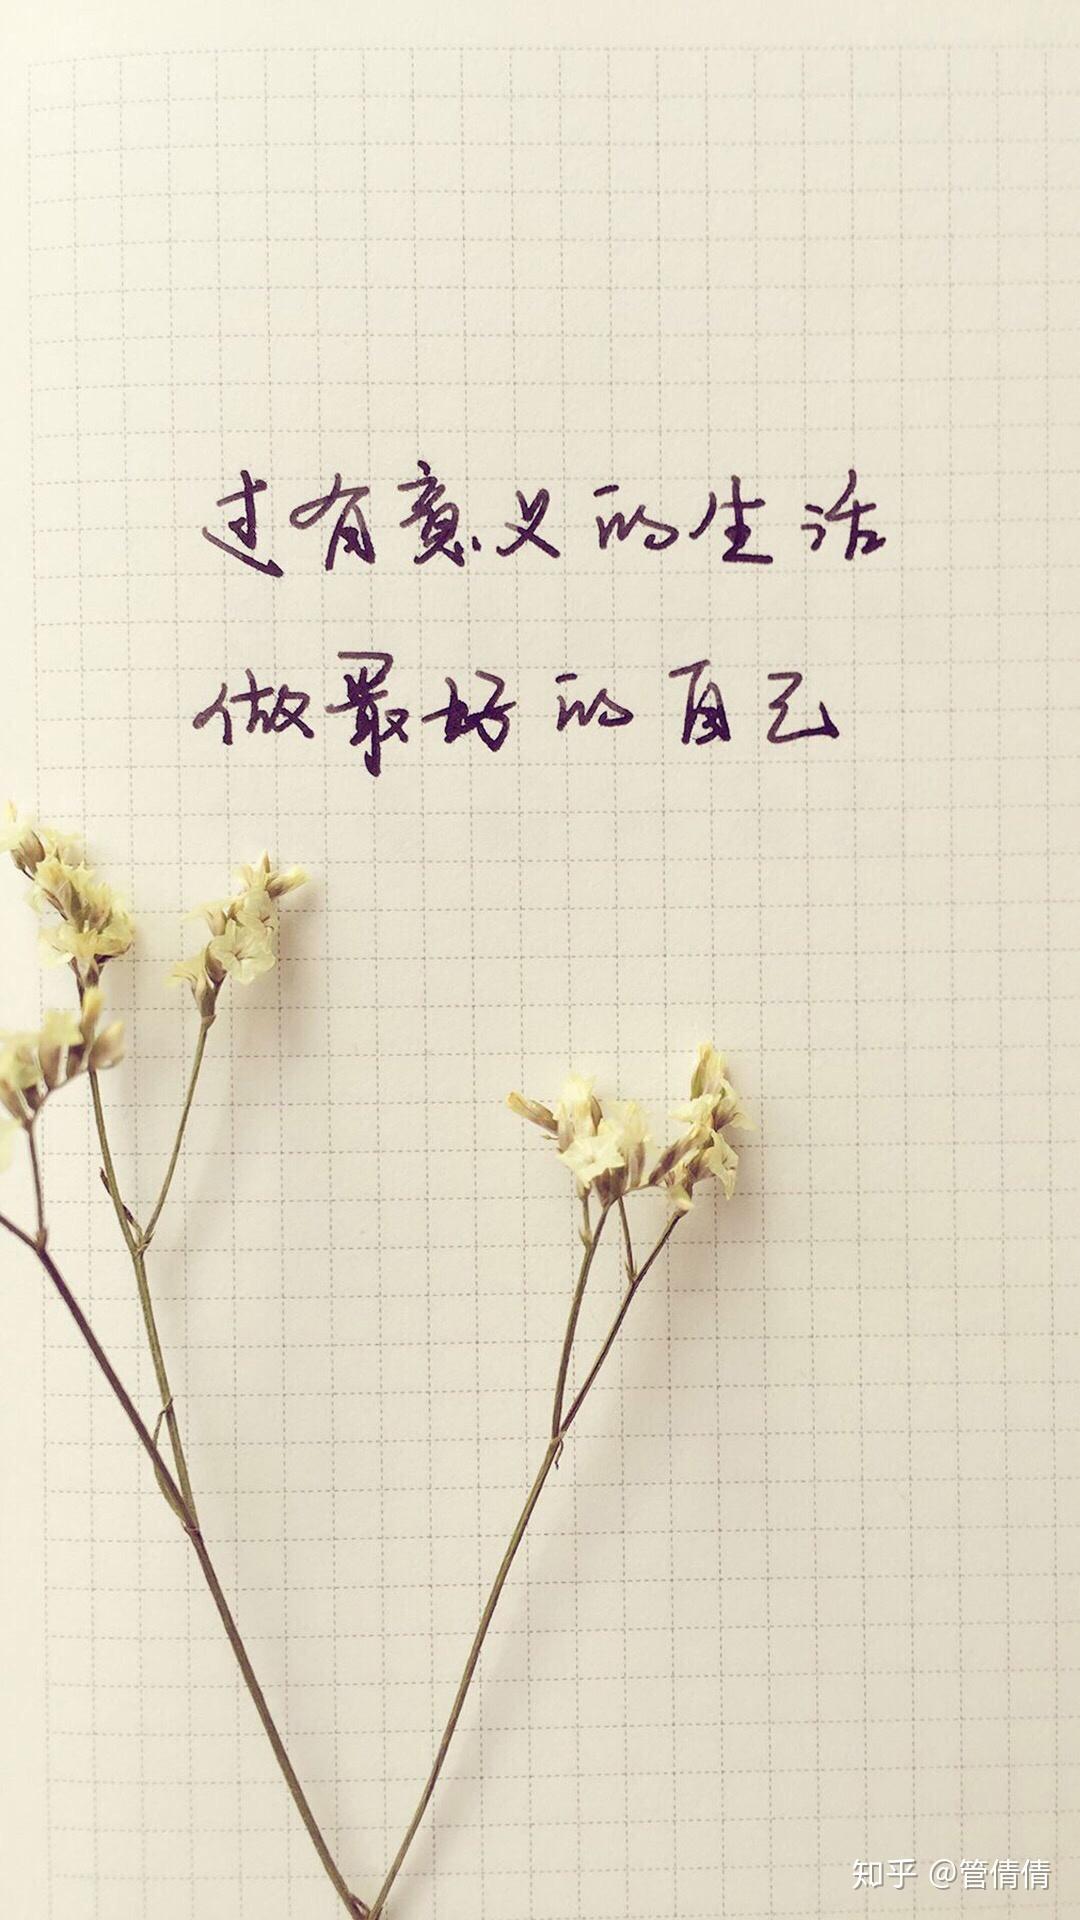 过有意义的生活
做最好的自己
知乎 @管倩倩